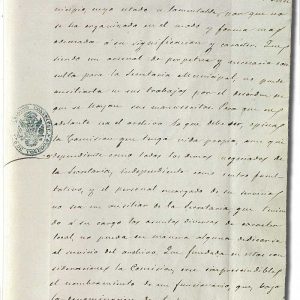 nicipio, cuyo estado es lamentable, por que no
se ha organizado en el modo y forma mas
adecuada a su significacion y caracter. Que
siendo un arsenal de perpetua y necesaria con
sulta para la Secretaria Municipal, no puede
auxiliarla en sus trabajos por el desorden
en que se hayan sus manuscritos. Para que en
adelante sea el archivo lo que debe ser, opina
la Comision que tenga vida propia, aun que
dependiente como todos los demas negociados
de la Secretaria, independiente como centro facul
tativo, y el personal encargado de su
no sea un auxiliar de la Secretaria que tenien
do a su cargo los asuntos diversos de caracter
local, no pueda en manera alguna dedicarse
al servicio del archivo. Que fundada en estas con
sideraciones la Comision, cree imprescindible
el nombramiento de un funcionario que, bajo
la denominacion de